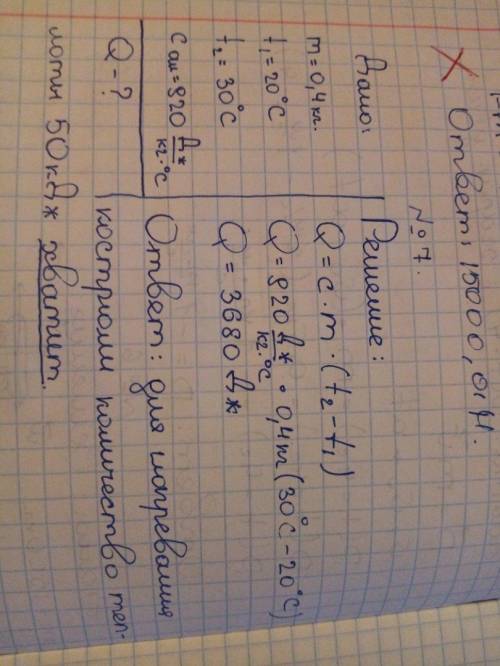 Ответ: 15000,01 Н.
№7.
Дано:
m = 0,4 кг.
t₁ = 20°С
t₂ = 30°С
С ал = 920 Дж/кг·°С
Q - ?
Решение:
Q = c · m · (t₂ - t₁)
Q = 920 Дж/кг·°С · 0,4 кг (30°С - 20°С)
Q = 3680 Дж
Ответ: для нагревания
кострюли количество теп-
лоты 50кДж хватит.